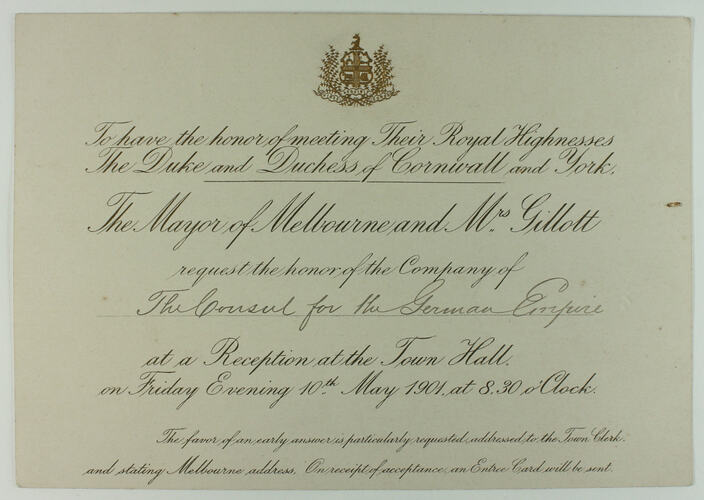 To have the honor of meeting Their Royal Highnesses
The Duke and Duchess of Cornwall and York.
The Mayor of Melbourne and Mrs Gillott
request the honor of the Company of
The Consul for the German Empire
at a Reception at the Town Hall.
on Friday Evening 10th May 1901, at 8.30 o'Clock.
The favor of an early answer is particularly requested, addressed to the Town Clerk.
and stating Melbourne address. On receipt of acceptance, an Entree Card will be sent.